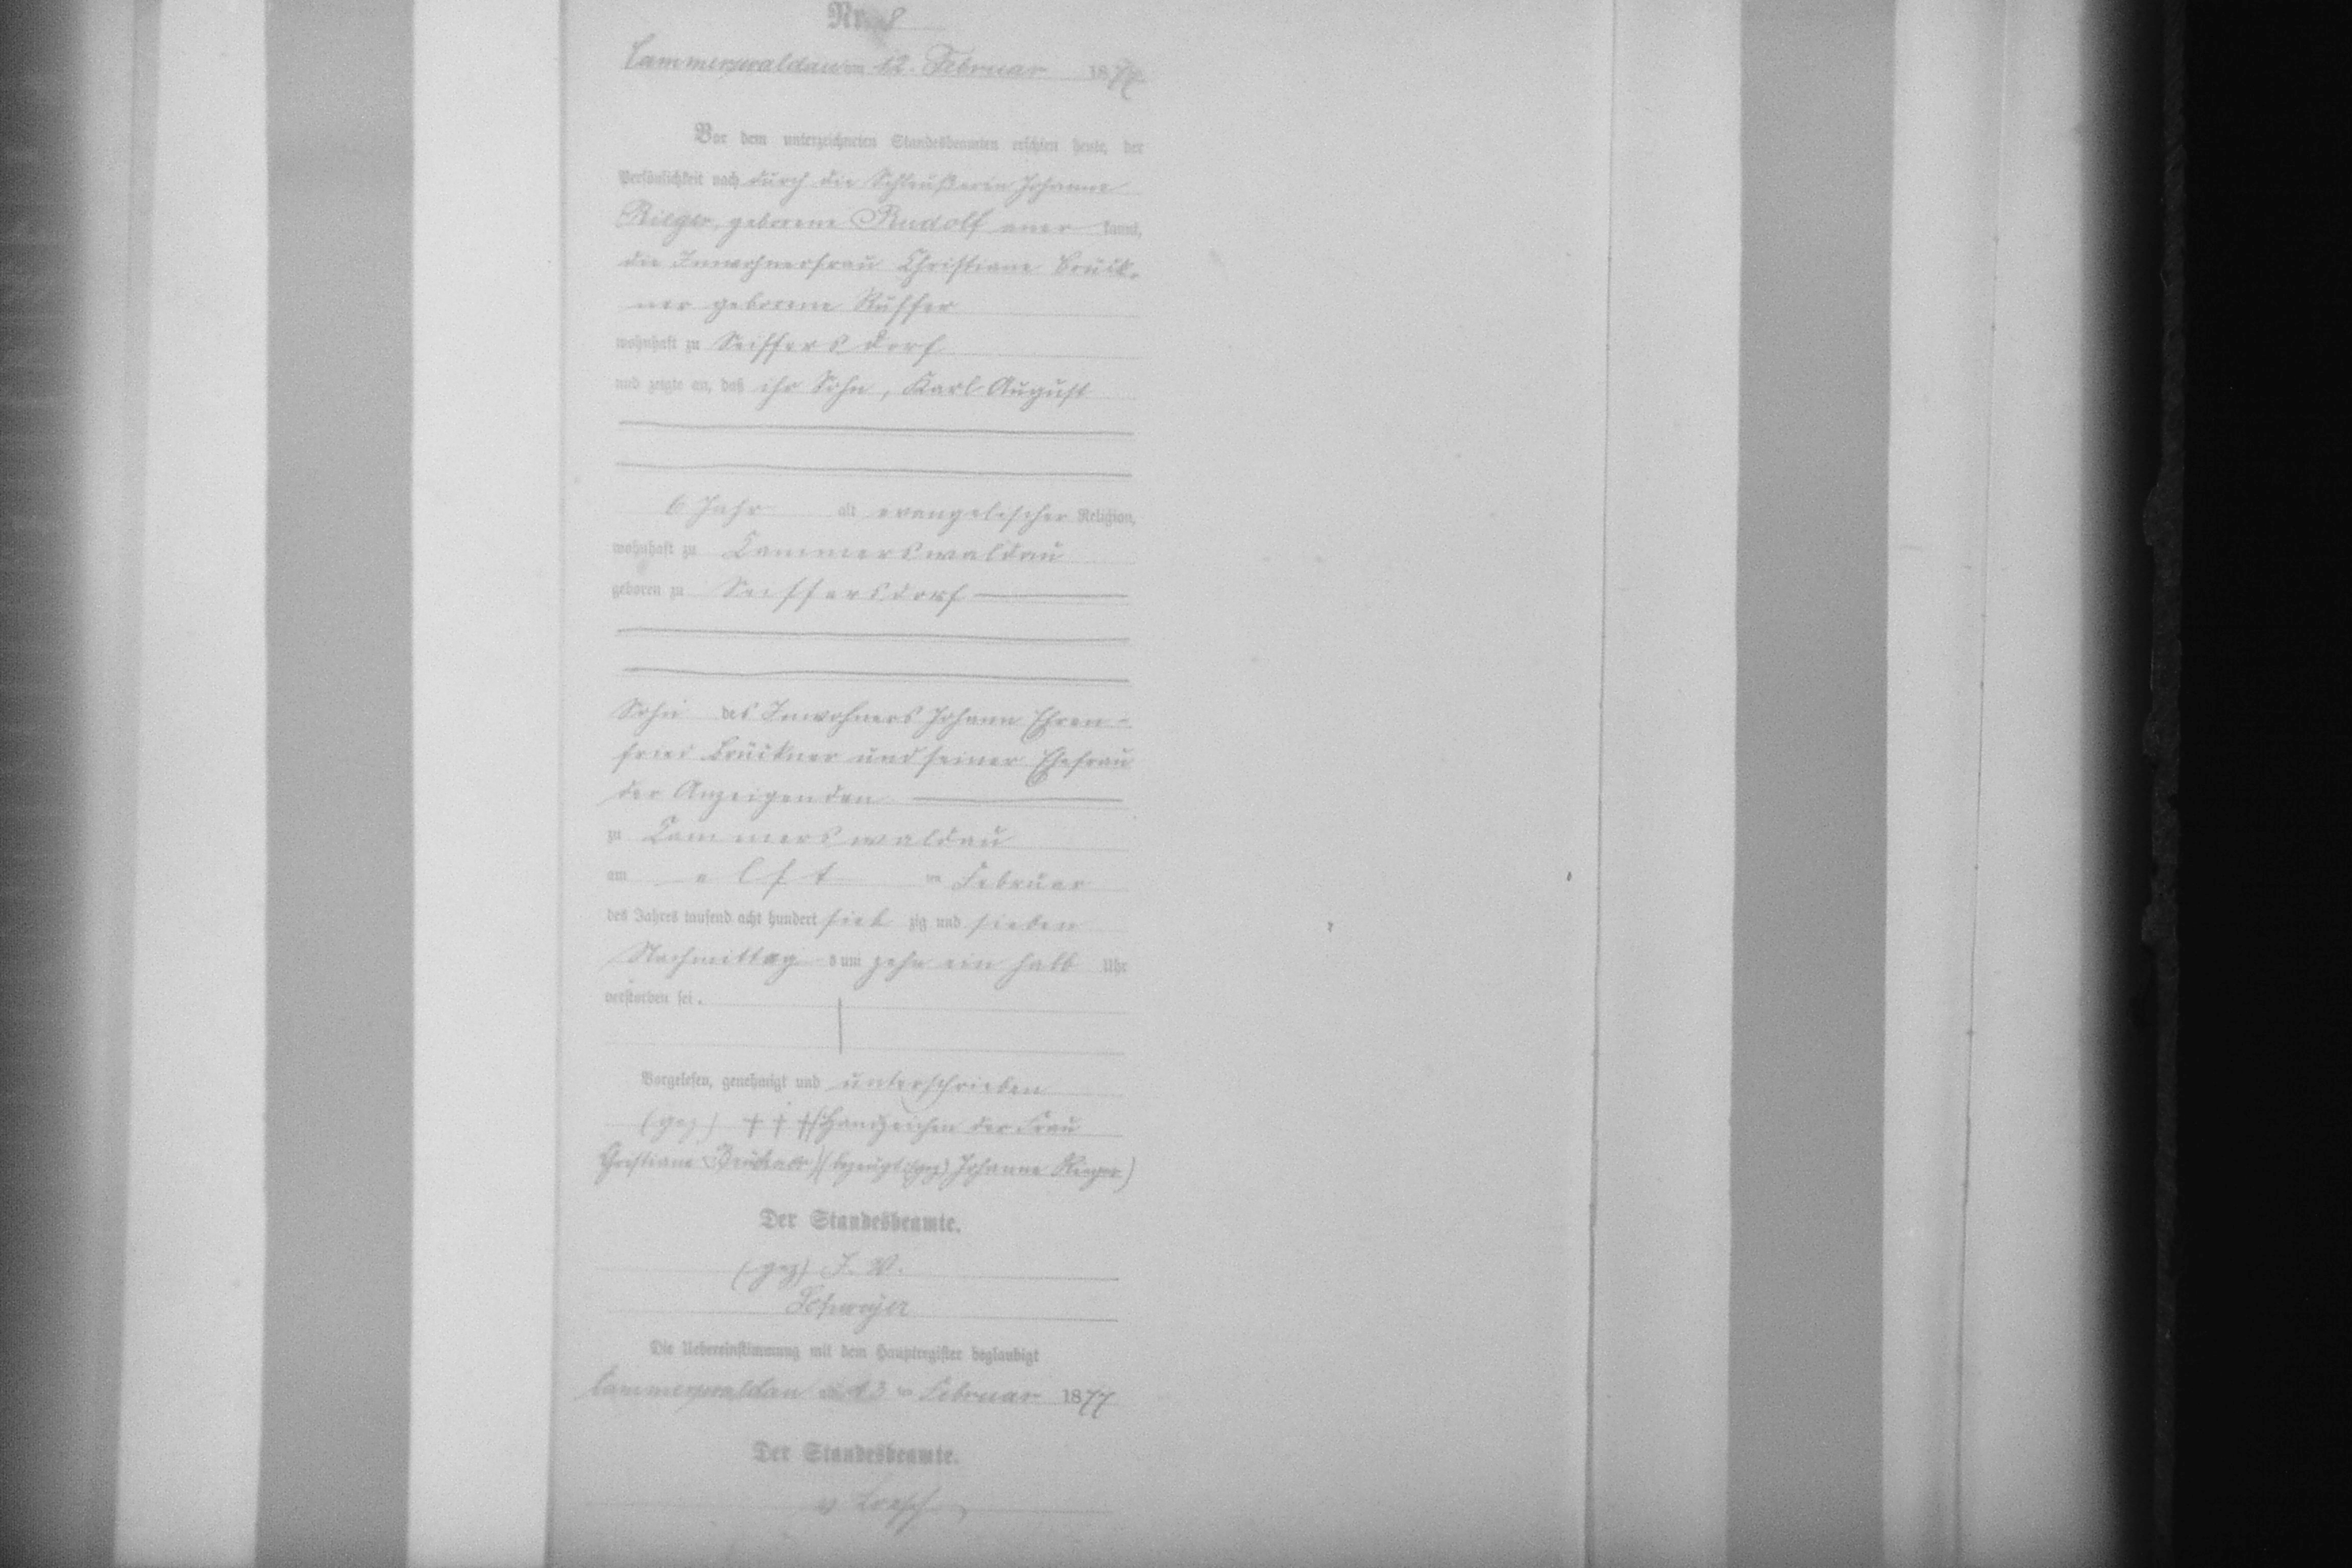 Nr. 8
Cammerswaldau am 12. Februar 1877
Vor dem unterzeichneten Standesbeamten erschien heute, der
Persönlichkeit nach durch die Schleußerin Johanne
Rieger, geborene Rudolf aner kannt,
die Inwohnerfrau Christiane Brück-
ner geborene Ruffer
wohnhaft zu Seiffersdorf
und zeigte an, daß ihr Sohn, Karl August
6 Jahr alt evangelischer Religion,
wohnhaft zu Cammerswaldau
geboren zu Seiffersdorf
Sohn des Inwohners Johann Ehren-
fried Brückner und seiner Ehefrau
der Anzeigenden
zu Cammerswaldau
am elft en Februar
des Jahres tausend acht hundert sieb zig und sieben
Nachmittag s um zehn ein halb Uhr
verstorben sei.
Vorgelesen, genehmigt und unterschrieben
(gez) † † † (Handzeichen der Frau
Christiane Brückner) (bezeugt: (gez) Johanne Rieger)
Der Standesbeamte.
(gez) I. V.
Die Uebereinstimmung mit dem Hauptregister beglaubigt
Cammerswaldau am 13 ten Februar 1877
Der Standesbeamte.